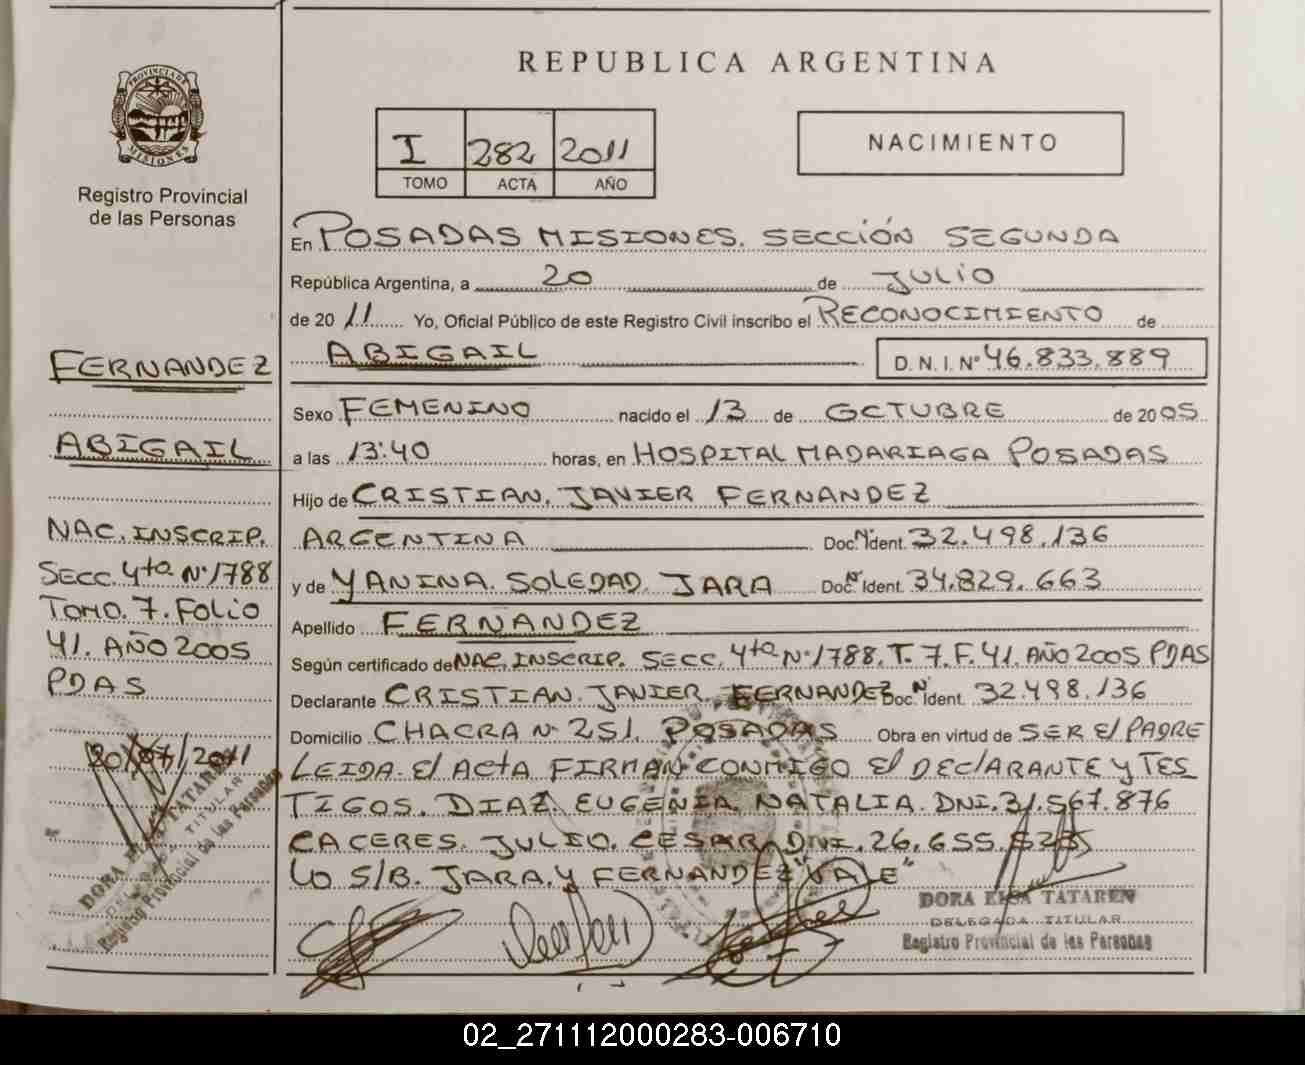 REPUBLICA ARGENTINA
PROVINCIA DE MISIONES
Registro Provincial
de las Personas
I 282 2011
TOMO ACTA AÑO
NACIMIENTO
En POSADAS MISIONES. SECCIÓN SEGUNDA
República Argentina, a 20 de JULIO
de 20 11 Yo, Oficial Público de este Registro Civil inscribo el RECONOCIMIENTO de
ABIGAIL D.N.I. Nº 46.833.889
Sexo FEMENINO nacido el 13 de OCTUBRE de 2005
a las 13:40 horas, en HOSPITAL MADARIAGA POSADAS
Hijo de CRISTIAN. JAVIER FERNANDEZ
ARGENTINA Doc. Nº Ident. 32.498.136
y de YANINA. SOLEDAD. JARA Doc. Nº Ident. 34.829.663
Apellido FERNANDEZ
Según certificado de NAC. INSCRIP. SECC. 4ta Nº 1788. T. 7. F. 41. AÑO 2005 PDAS
Declarante CRISTIAN. JAVIER. FERNANDEZ Doc. Nº Ident. 32.498.136
Domicilio CHACRA Nº 251. POSADAS Obra en virtud de SER El PADRE
LEIDA. El ACtA FIRMAN CONMIGO El DEClARANTE y TES
TIGOS. DIAZ. EUGENIA. NATALIA. DNI. 31.567.876
CACERES. JULIO. CESAR. DNI. 26.655.
LO S/B. JARA. Y FERNANDEZ "VALE"
DORA ELSA TATAREN
DELEGADA TITULAR
Registro Provincial de las Personas
FERNANDEZ
ABIGAIL
NAC. INSCRIP.
SECC 4ta Nº 1788
TOMO. 7. FOLIO
41. AÑO 2005
PDAS
20/07/2011
DORA ELSA TATAREN
DELEGADA TITULAR
Registro Provincial de las Personas
02_271112000283-006710